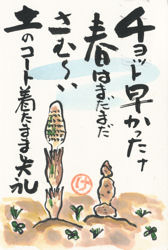 チョット早かったナ
春はまだまだ
さむ〜い
土のコート着たまま失礼